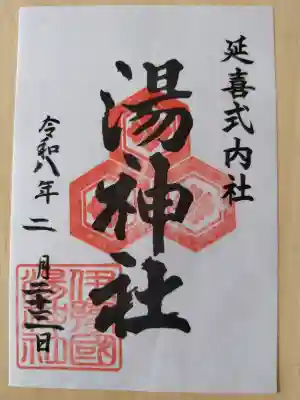 延喜式内社
湯神社
令和八年二月二十二日
伊豫國
湯神社